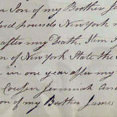 Son of my Brother J
hundred pounds New york
after my Death. Item I
on of New york State the
in one year after my
Cousin Jeremiah
on of my Brother James